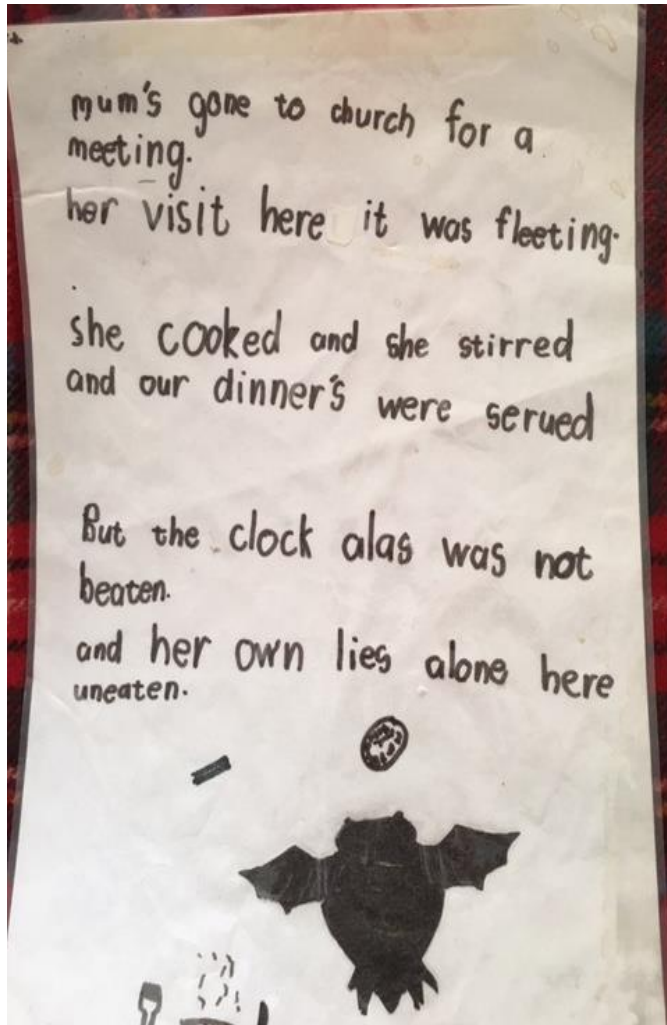 mum's gone to church for a
meeting.
her visit here it was fleeting.
she cooked and she stirred
and our dinner's were serued
But the clock alas was not
beaten.
and her own lies alone here
uneaten.